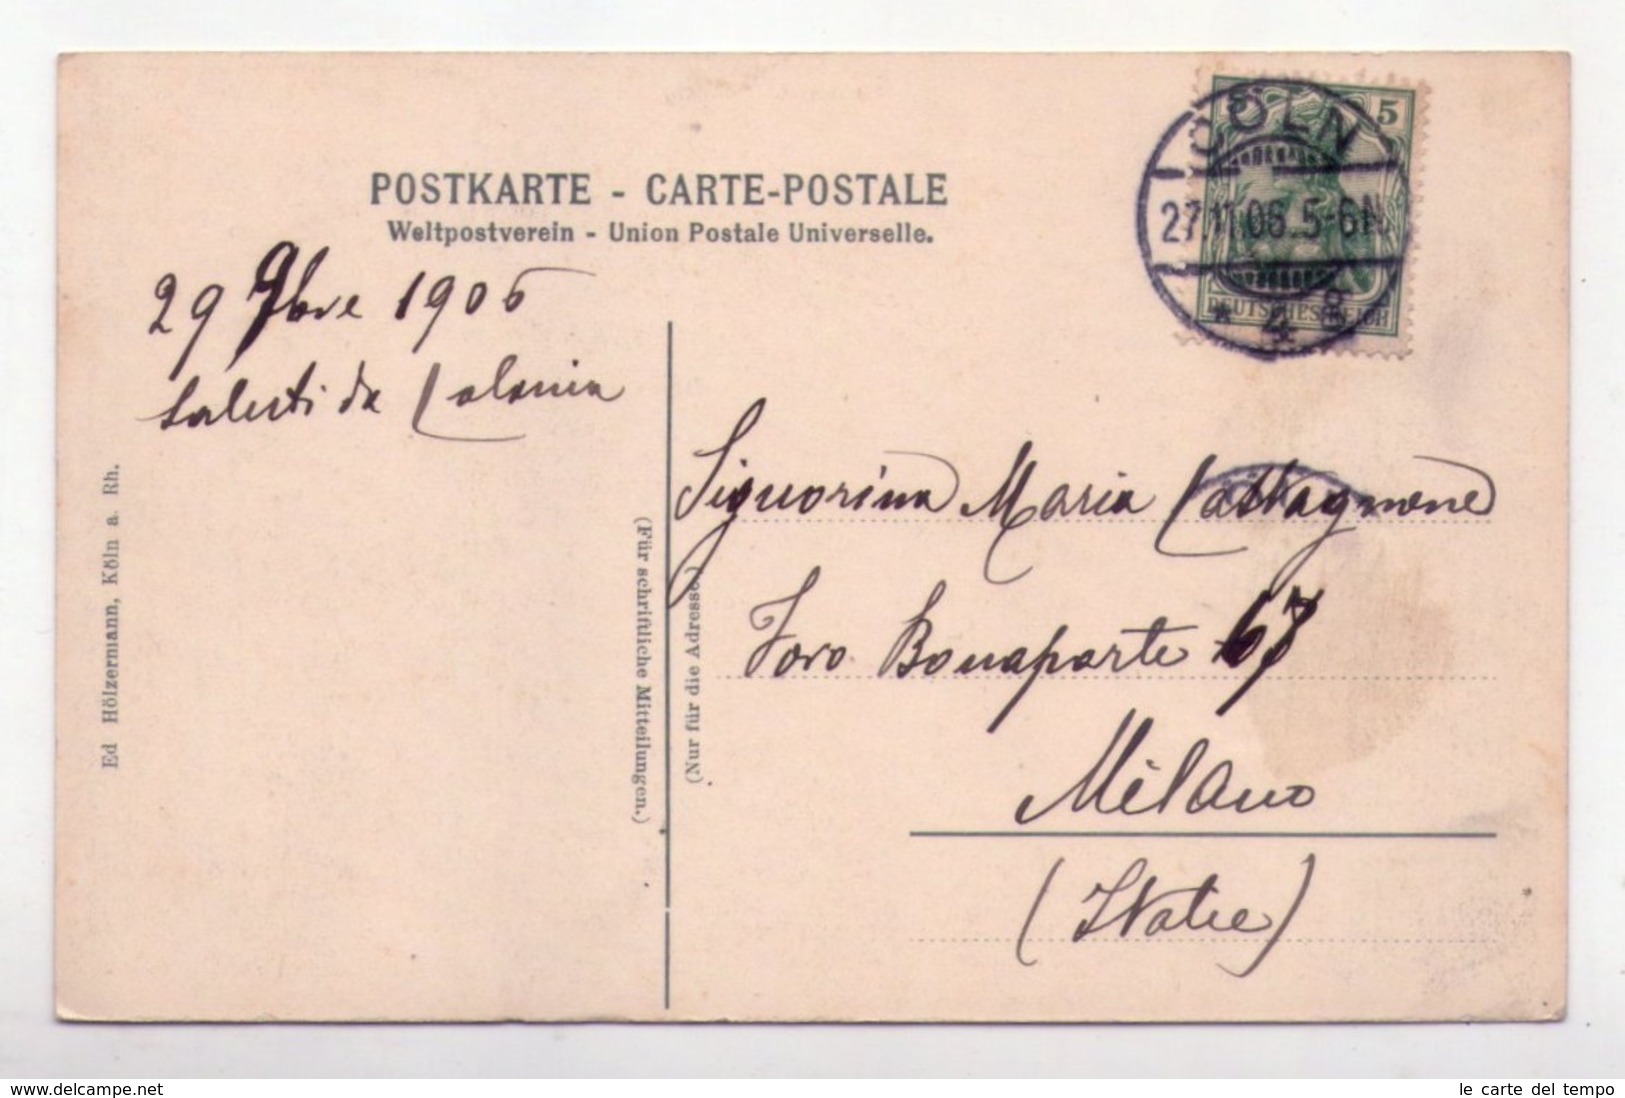 POSTKARTE - CARTE-POSTALE
Weltpostverein - Union Postale Universelle.
CÖLN
27.11.06. 5-6N
* 4 8
5
DEUTSCHES REICH
29 9bre 1906
Saluti da Colonia
Signorina Maria Castagnone
Foro Bonaparte 67
Milano
(Italie)
(Für schriftliche Mitteilungen.)
(Nur für die Adresse)
Ed Hölzermann, Köln a. Rh.
www.delcampe.net
le carte del tempo